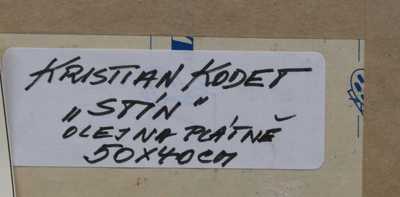 KRISTIAN KODET
„STÍN"
OLEJ NA PLÁTNĚ
50X40CM